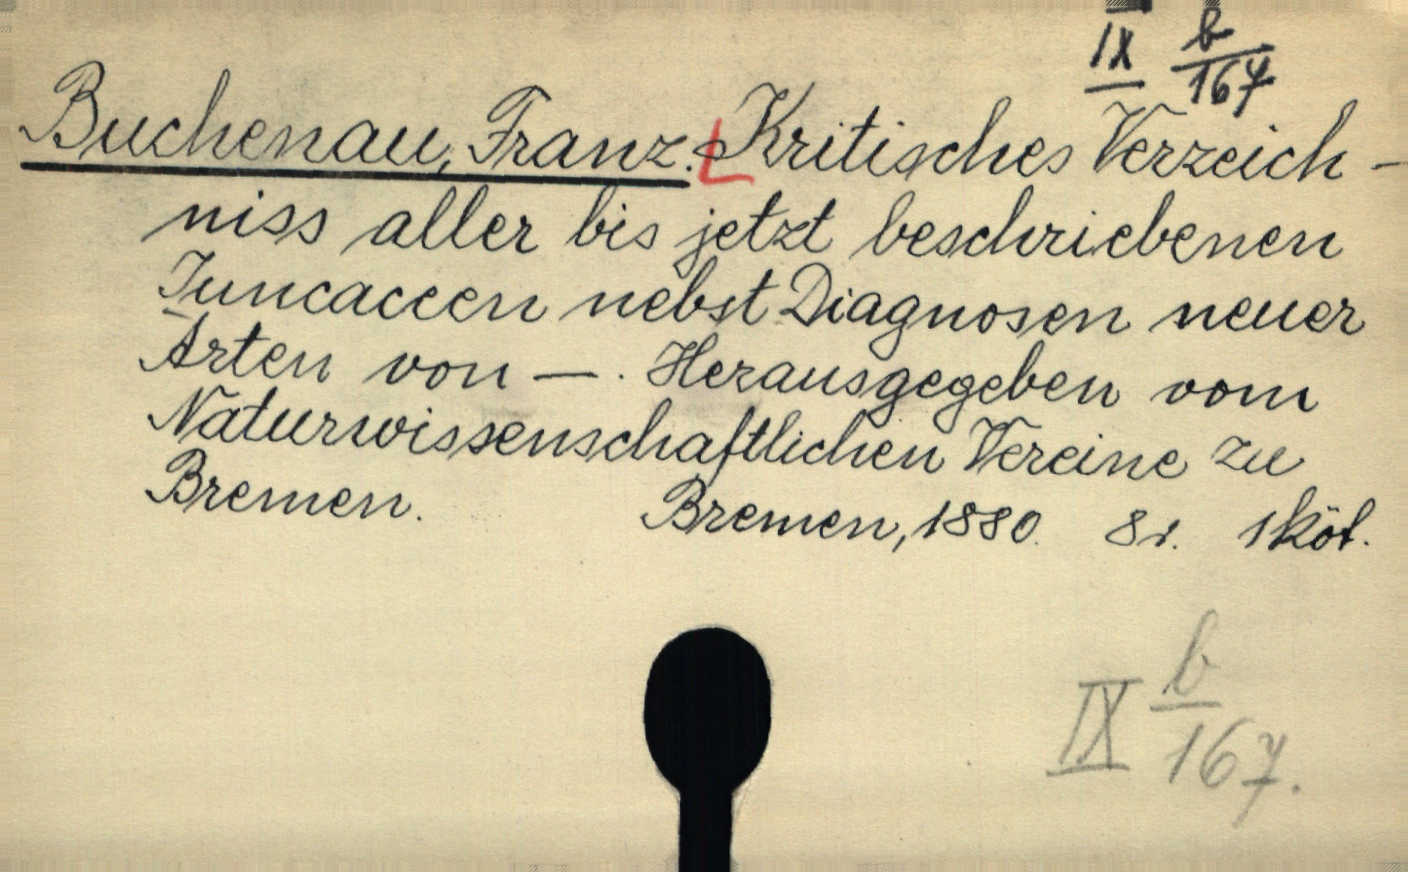 IX b/167
Buchenau, Franz. Kritisches Verzeich-
niss aller bis jetzt beschriebenen
Juncaceen nebst Diagnosen neuer
Arten von —. Herausgegeben vom
Naturwissenschaftlichen Vereine zu
Bremen. Bremen, 1880. 8r. 1 köt.
IX b/167.